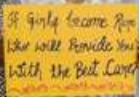 If Girls become Rare
Who will Provide You
With the Best Care